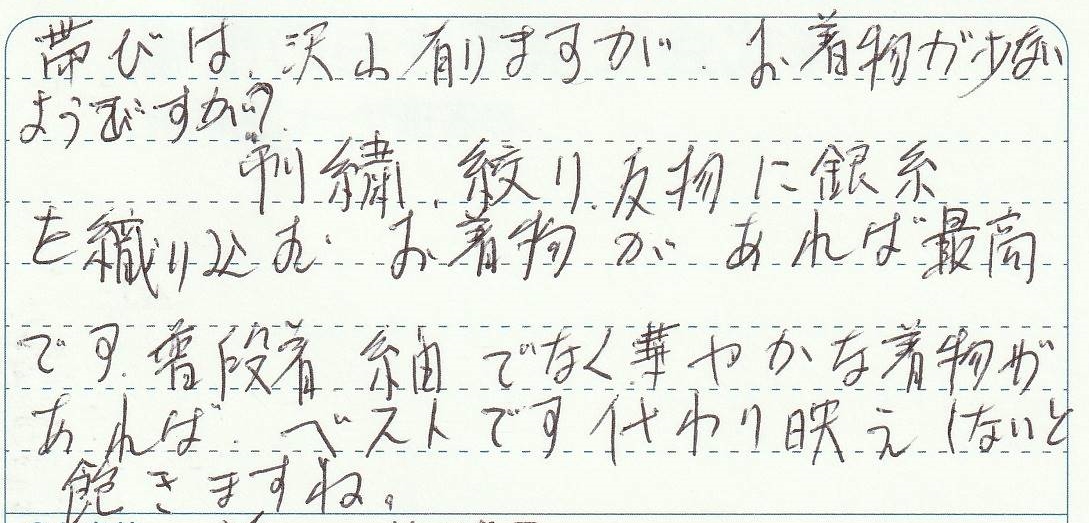 帯びは、沢山有りますが、お着物が少ない
ようですが?
刺繍、絞り、反物に銀糸
を織り込むお着物があれば最高
です。普段着、紬でなく華やかな着物が
あれば、ベストです代わり映えしないと
飽きますね。